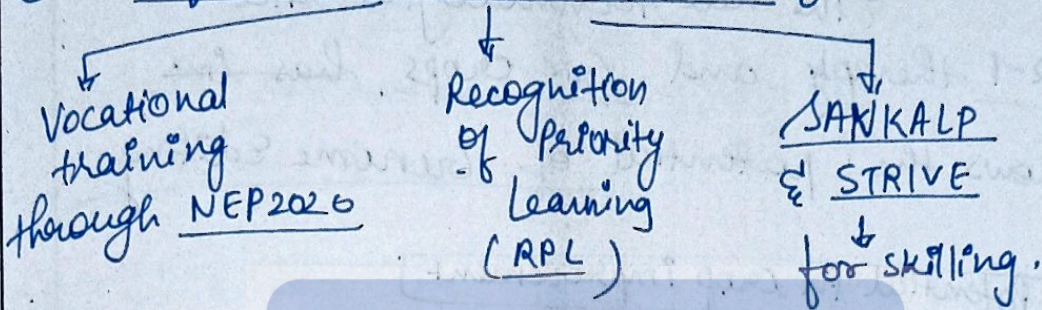 Vocational
training
through NEP2020
Recognition
of Priority
Learning
(RPL)
SANKALP
& STRIVE
for skilling.